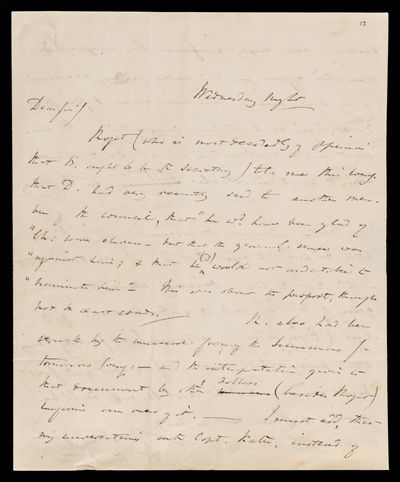 13
Wednesday Night
Dear Sir/
Roget (who is most decidedly of opinion
that B. ought to be the Secretary) told me this Eveng.
that D. had very recently said to another mem-
ber of the council, that "he wd. have been glad of
"Ch: some chosen - but that the general sense was
"against him; & that he (D) would not undertake to
"nominate him" - This was about the purport, though
not the exact words. -
R. also has been
struck by the unusual form of the Summons for
tomorrow Eveng: - and the interpretation given to
that document by other Fellows (besides Roget)
- I must add, that
my conversations with Capt. Kater, instead of